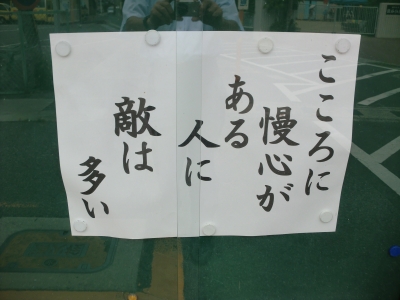 こころに
慢心が
ある
人に
敵は
多い